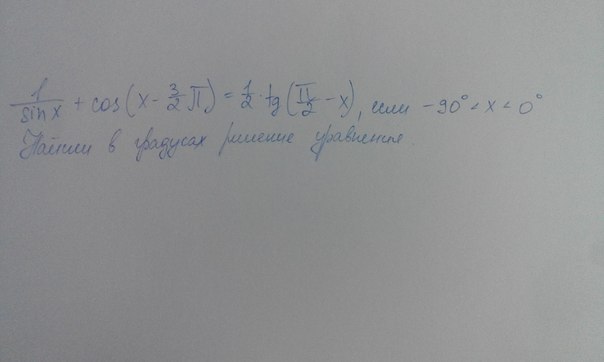 1/sin x + cos(x - 3/2 π) = 1/2 · tg(π/2 - x), если -90° < x < 0°
Найти в градусах решение уравнения.